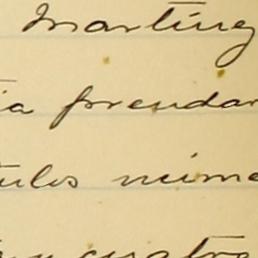 Martiny
ia prendar
tulos nume
cuatro